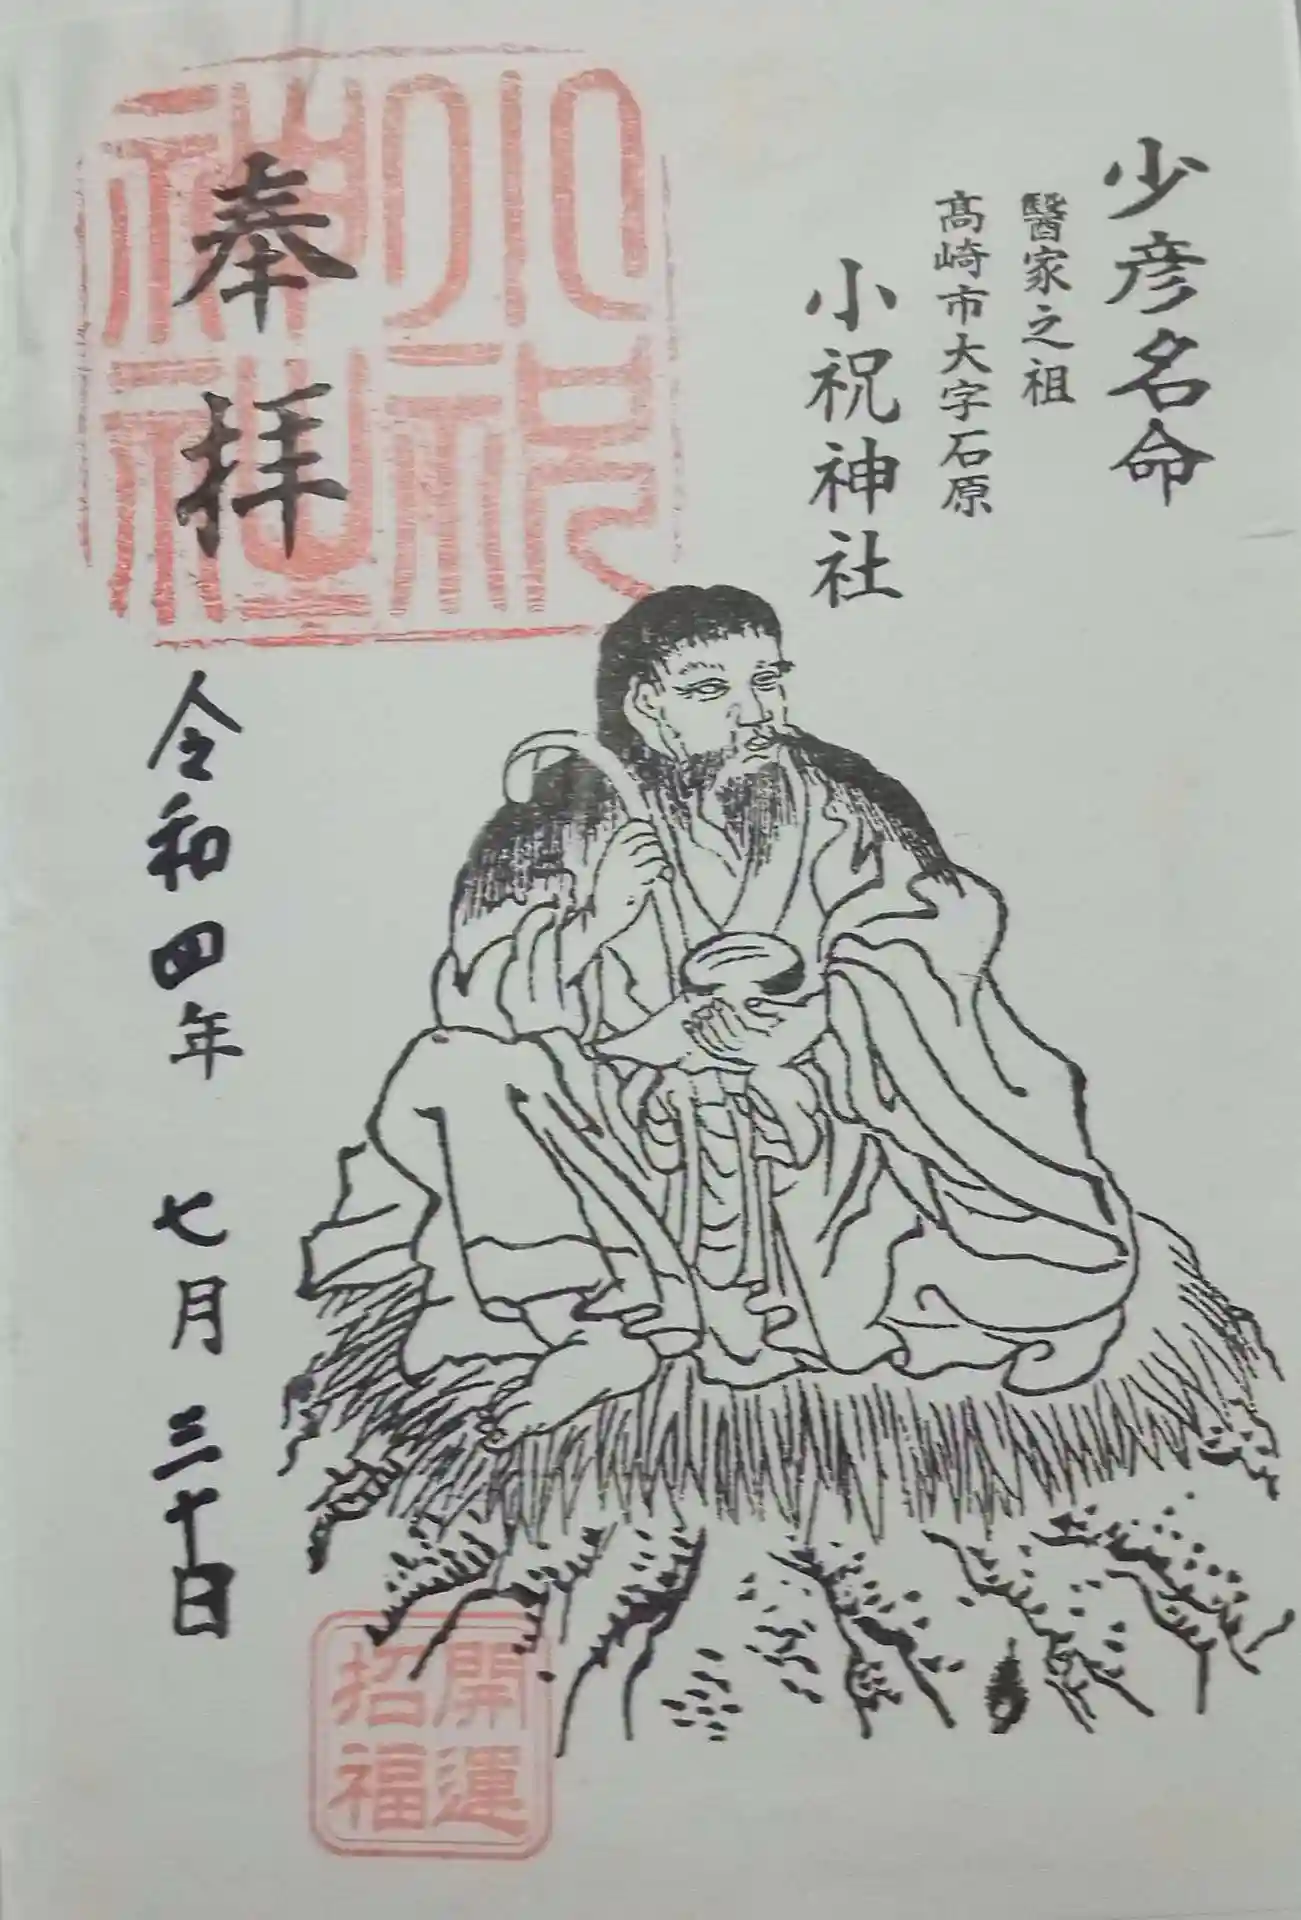 少彦名命
醫家之祖
髙崎市大字石原
小祝神社
奉拝
小祝神社
令和四年 七月 三十日
開運招福